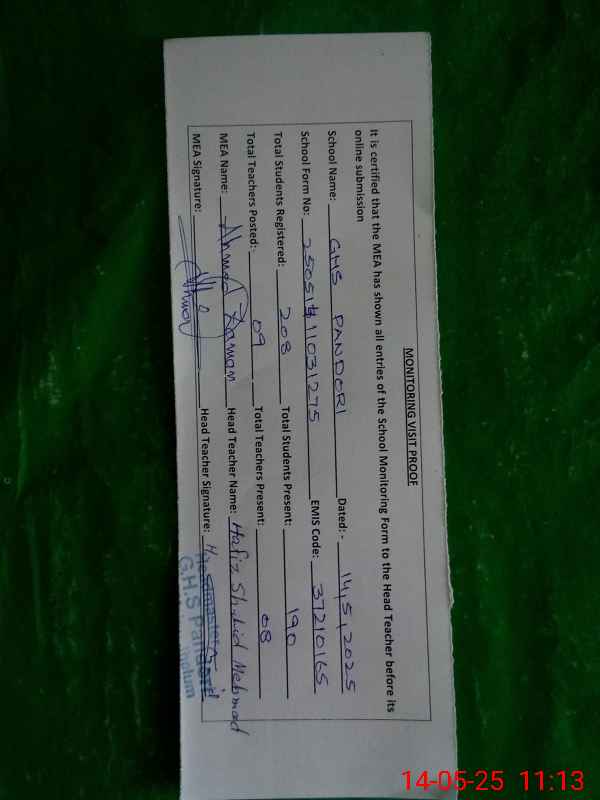 MONITORING VISIT PROOF
It is certified that the MEA has shown all entries of the School Monitoring Form to the Head Teacher before its
online submission
School Name: GHS PANDORI Dated:- 14/5/2025
School Form No: 25051411031275 EMIS Code: 37210165
Total Students Registered: 208 Total Students Present: 190
Total Teachers Posted:- 09 Total Teachers Present: 08
MEA Name: Ahmed Zaman Head Teacher Name: Hafiz Shahid Mehmood
MEA Signature: Head Teacher Signature:
Headmaster
G.H.S Pandori
Jhelum
14-05-25 11:13